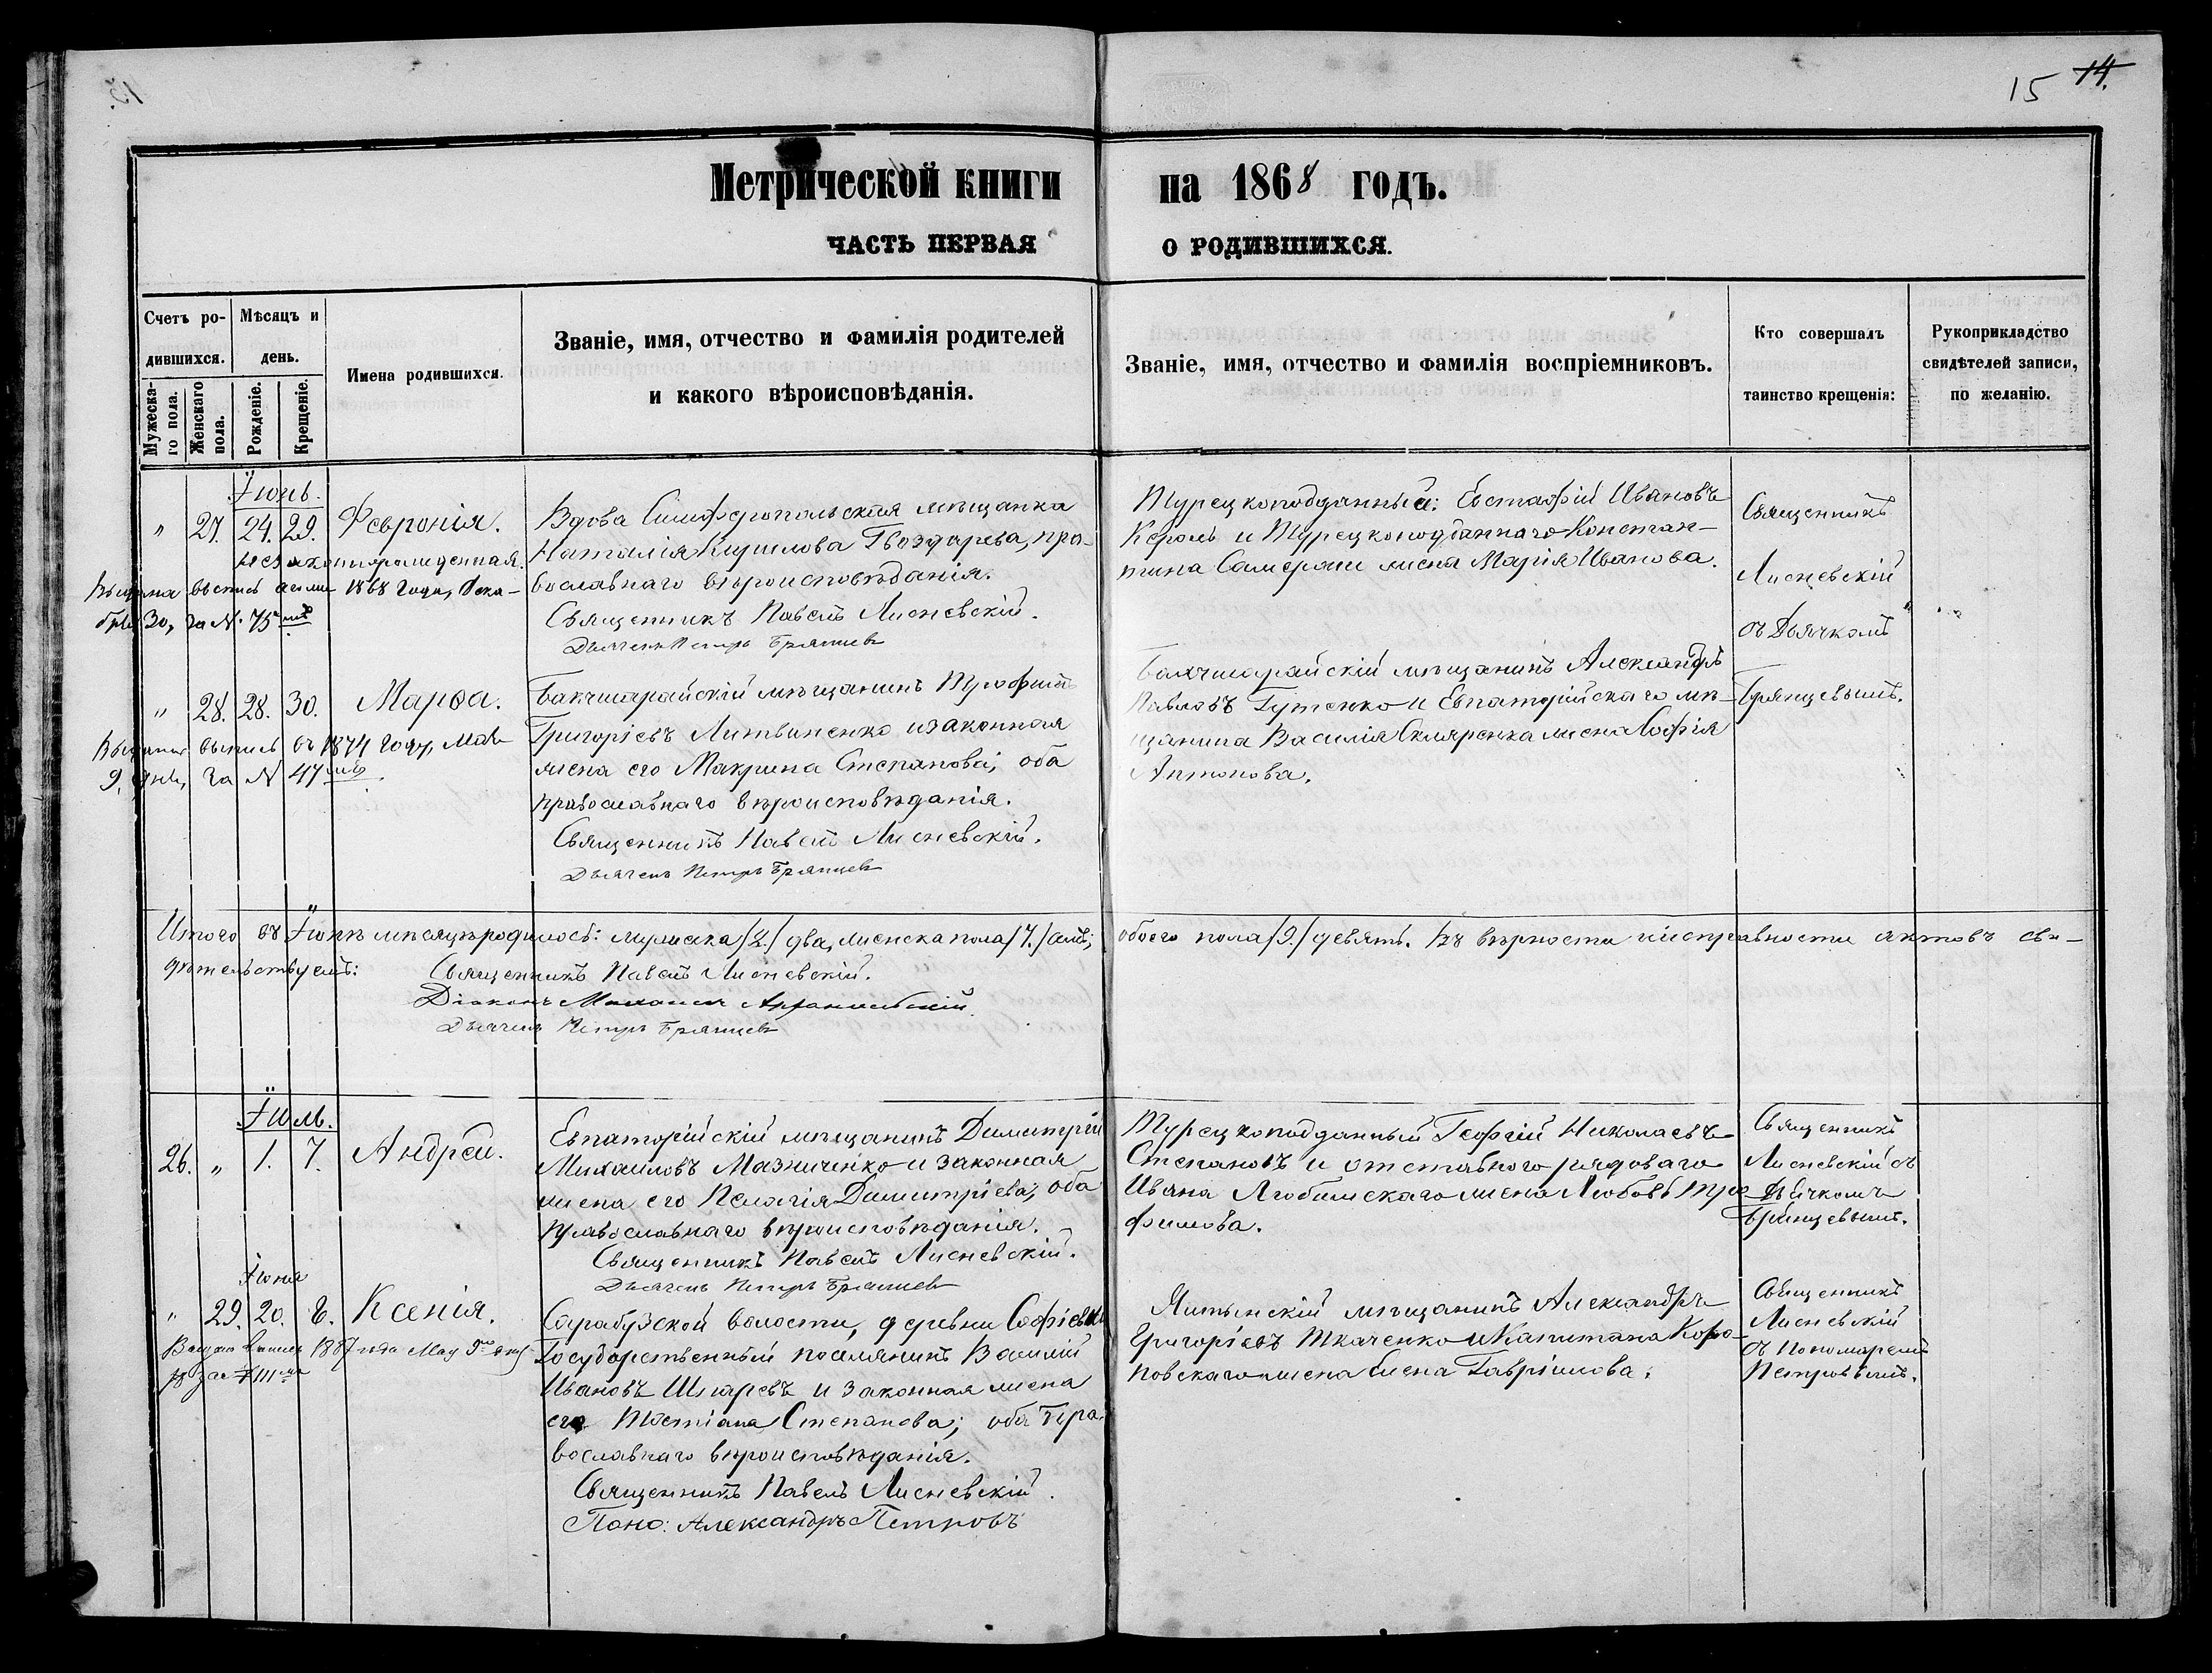 15 14.
Метрической книги на 1868 годъ.
ЧАСТЬ ПЕРВАЯ О РОДИВШИХСЯ.
Счетъ ро-
дившихся.
Мужеска-
го пола.
Женскаго
пола.
Мѣсяцъ и
день.
Рожденіе.
Крещеніе.
Имена родившихся.
Званіе, имя, отчество и фамилія родителей
и какого вѣроисповѣданія.
Званіе, имя, отчество и фамилія воспріемниковъ.
Кто совершалъ
таинство крещенія:
Рукоприкладство
свидѣтелей записи,
по желанію.
Іюнь.
" 27. 24. 29. Февронія.
незаконнорожденная.
выпись 1868 года, Дека-
бря 30, за № 75
Вдова Симферопольская мѣщанка
Наталія Кирилова Гвоздарева, пра-
вославнаго вѣроисповѣданія.
Священникъ Павелъ Лисневскій.
Дьячекъ Петръ Брянцевъ
Турецкоподданный: Евстафій Ивановъ
и Турецкоподданнаго Констан-
тина жена Марія Иванова.
Священникъ
Лисневскій
съ Дьячкомъ
Брянцевымъ.
" 28. 28. 30. Марѳа.
выпись въ 1874 году, Мая
9, дня, за № 47
Бакчисарайскій мѣщанинъ Трофимъ
Григорьевъ Литвиненко и законная
жена его Макрина Степанова; оба
православнаго вѣроисповѣданія.
Священникъ Павелъ Лисневскій.
Дьячекъ Петръ Брянцевъ
Бакчисарайскій мѣщанинъ Александръ
Павловъ Гутенко и Евпаторійскаго мѣ-
щанина Василія Скляренка жена Софія
Антонова.
Итого въ Іюнѣ мѣсяцѣ родилось: мужеска /2./ два, женска пола /7./ семь; обоего пола /9./ девять. Въ вѣрности и исправности актовъ сви-
дѣтельствуемъ:
Священникъ Павелъ Лисневскій.
Діаконъ Михаилъ
Дьячекъ Петръ Брянцевъ
Іюль.
26. " 1. 7. Андрей.
Евпаторійскій мѣщанинъ Димитрій
Михаиловъ Мазниченко и законная
жена его Пелагія Димитріева; оба
православнаго вѣроисповѣданія.
Священникъ Павелъ Лисневскій.
Дьячекъ Петръ Брянцевъ
Турецкоподданный Георгій Николаевъ
Степановъ и отставного рядоваго
Ивана жена Любовь Тро-
фимова.
Священникъ
Лисневскій съ
Дьячкомъ
Брянцевымъ.
Іюня
" 29. 20. Ксенія.
выпись 1887 года Мая
за № 111
Сарабузской волости, деревни Софіевки
Государственный поселянинъ Василій
Ивановъ и законная жена
его Тастіана Степанова; оба пра-
вославнаго вѣроисповѣданія.
Священникъ Павелъ Лисневскій.
Поно: Александръ Петровъ
Ялтинскій мѣщанинъ Александръ
Григорьевъ Ткаченко и Капитана
жена Елена Гавріилова.
Священникъ
Лисневскій
съ Пономаремъ
Петровымъ.